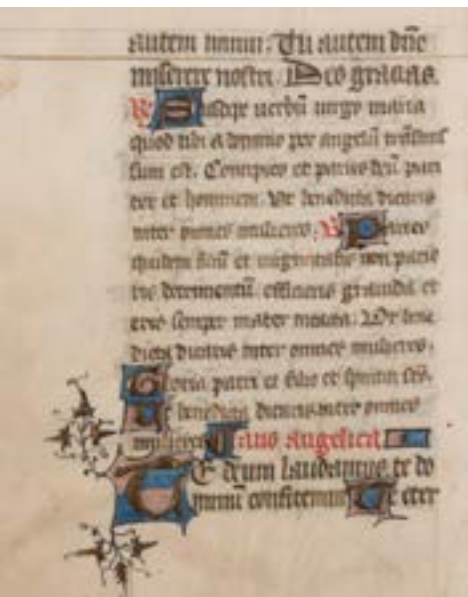 autem nimiū. Tu autem dñe
miserere nostri. Deo gracias.
R Suscipe uerbū uirgo maria
quod tibi a domino per angelū transmissū
sum est. Concipies et paries deū pari
ter et hominem. Ut benedicta dicaris
inter omnes mulieres. V Paries
quidem filiū et uirginitatis non pacie
ris detrimentū efficieris grauida et
eris semper mater intacta. Ut bene
dicta dicaris inter omnes mulieres.
Gloria patri et filio et spiritui scō.
Ut benedicta dicaris inter omnes
mulieres
T E deum laudamus te do
minū confitemur Te eter